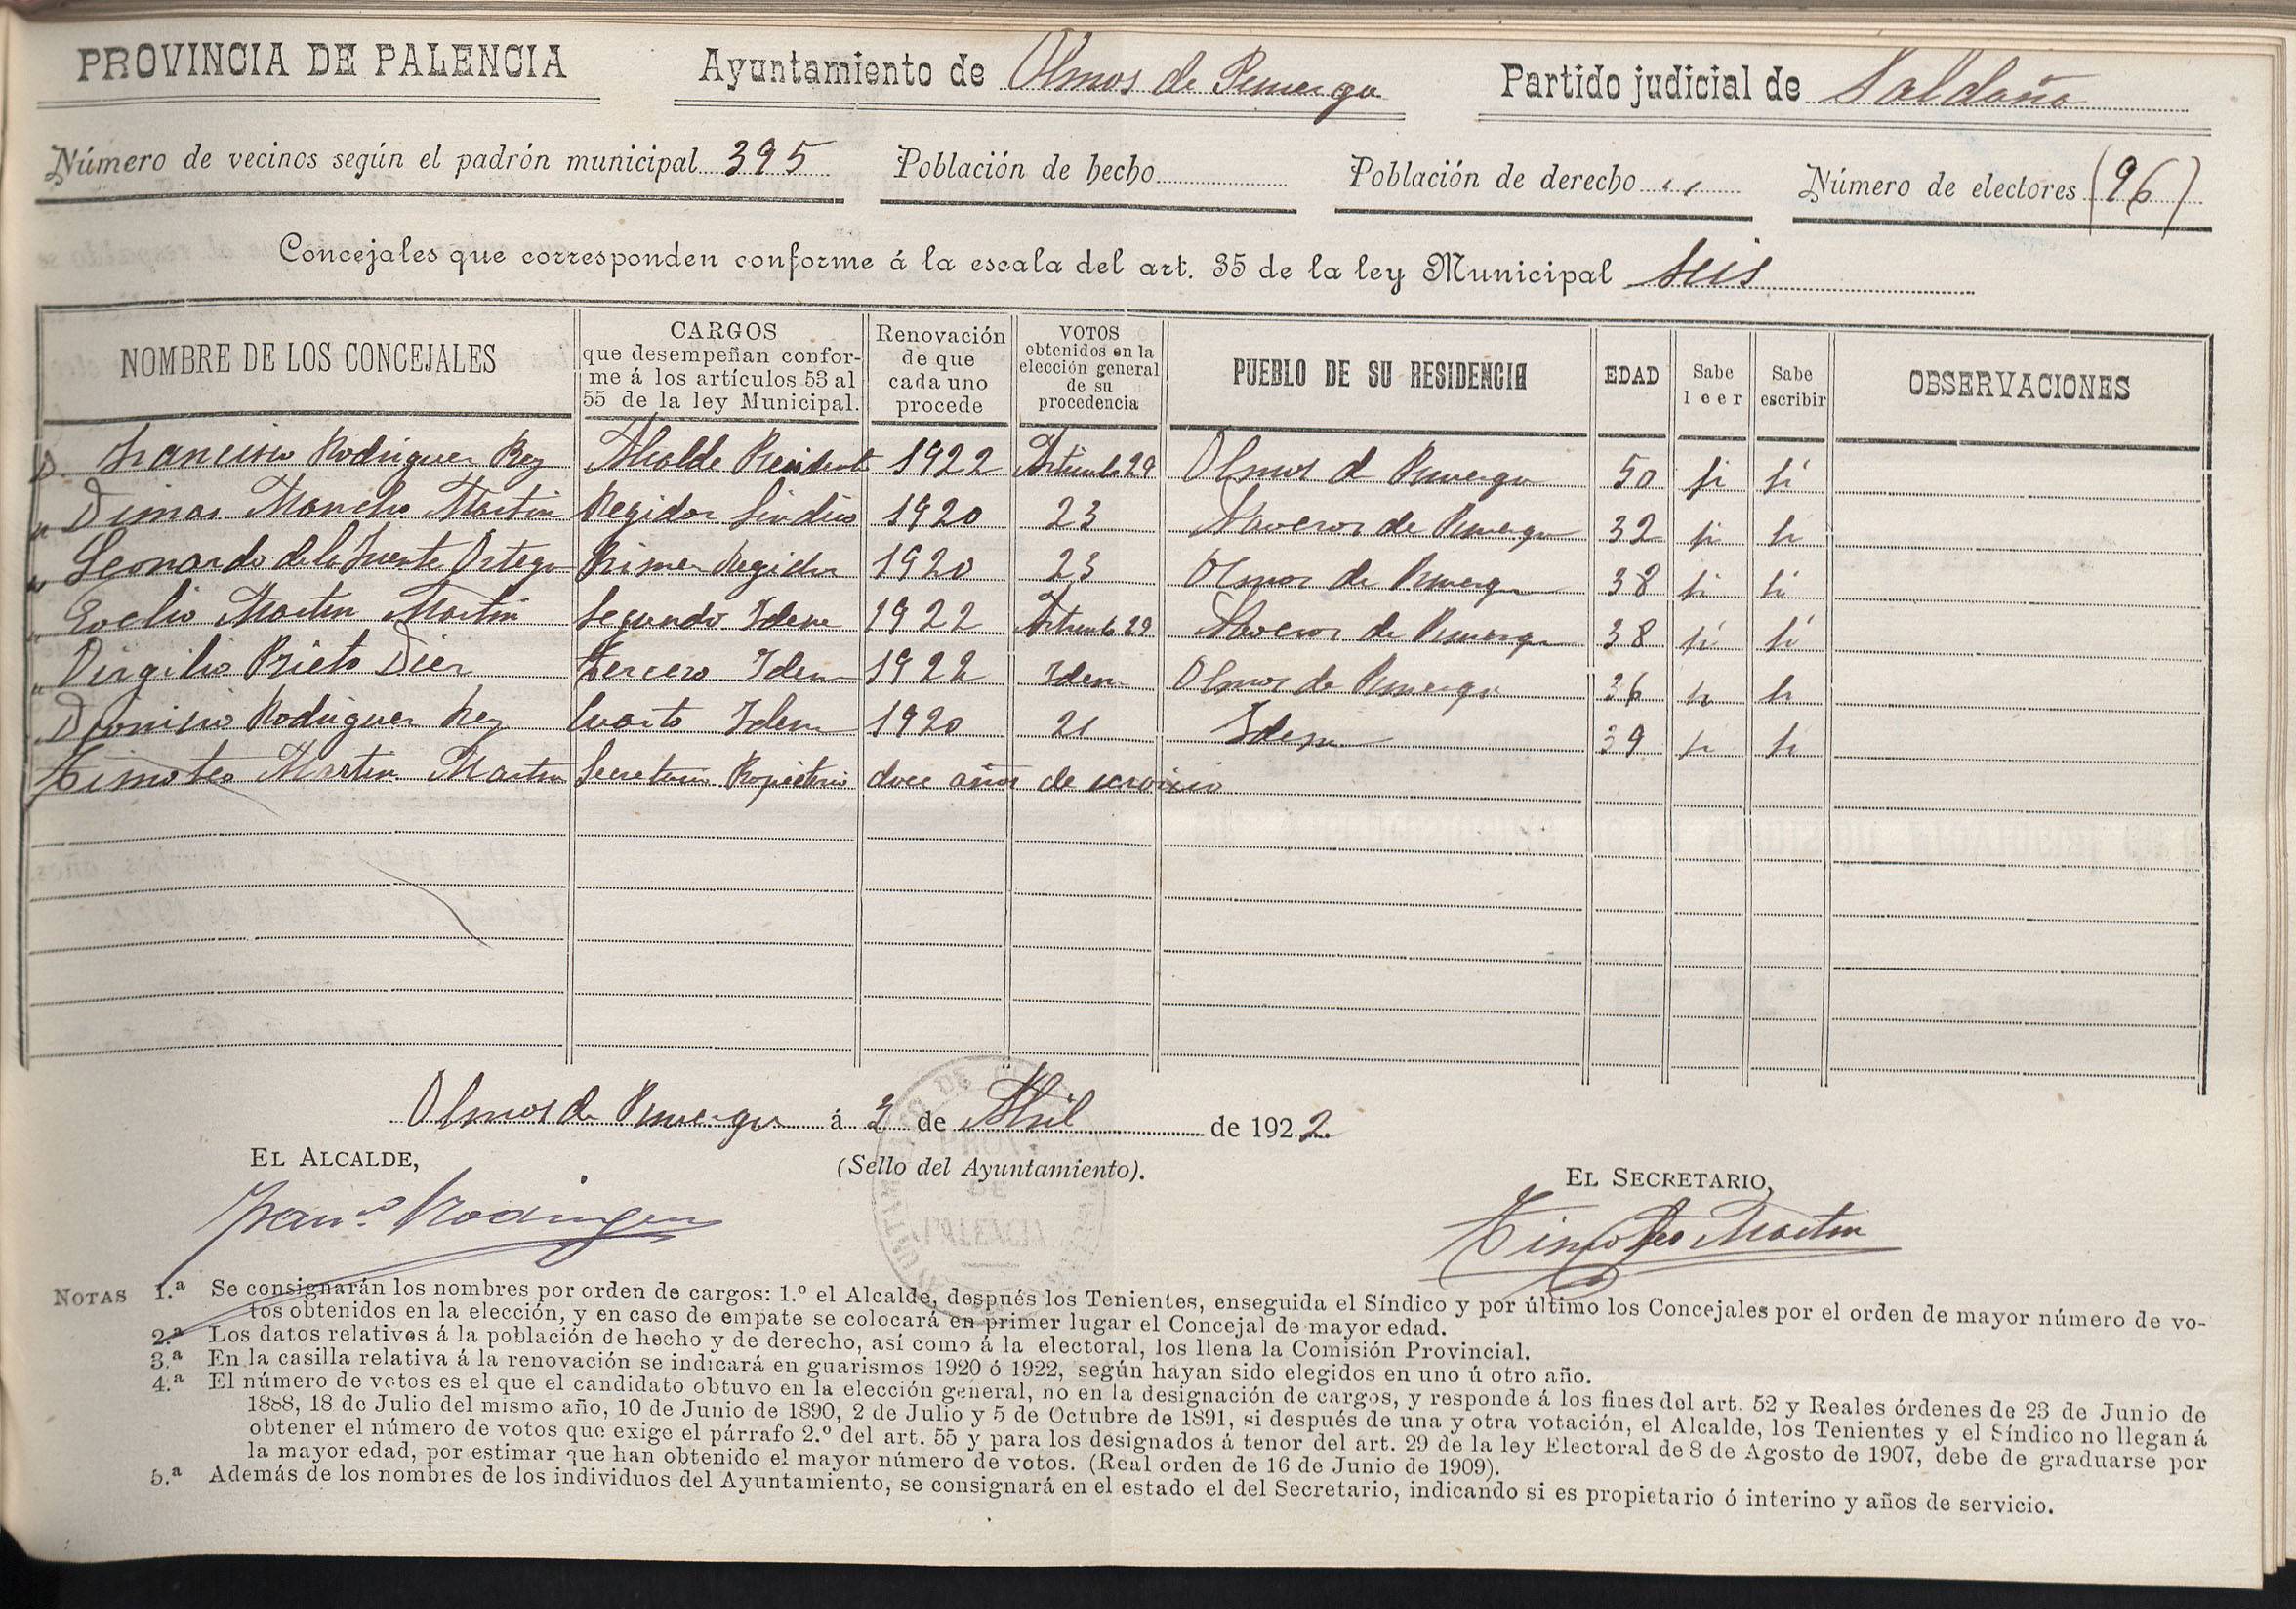 PROVINCIA DE PALENCIA Ayuntamiento de Olmos de Pisuerga Partido judicial de Saldaña
Número de vecinos según el padrón municipal 395 Población de hecho Población de derecho " Número de electores (96)
Concejales que corresponden conforme á la escala del art. 35 de la ley Municipal seis
NOMBRE DE LOS CONCEJALES
CARGOS
que desempeñan confor-
me á los artículos 53 al
55 de la ley Municipal.
Renovación
de que
cada uno
procede
VOTOS
obtenidos en la
elección general
de su
procedencia
PUEBLO DE SU RESIDENCIA
EDAD
Sabe
leer
Sabe
escribir
OBSERVACIONES
D. Francisco Rodriguez Rey Alcalde Presidente 1922 Articulo 29 Olmos d Pisuerga 50 si sí
" Dimas Mancho Martin Regidor Sindico 1920 23 Naveros de Pisuerga 32 si si
" Leonardo de la Fuente Ortega Primer Regidor 1920 23 Olmos de Pisuerga 38 si si
" Evelio Martin Martin Segundo Idem 1922 Articulo 29 Naveros de Pisuerga 38 sí sí
" Virgilio Prieto Diez Tercero Idem 1922 Idem Olmos de Pisuerga 36 si si
" Dionisio Rodriguez Rey Cuarto Idem 1920 21 Idem 39 si si
Timoteo Martin Martin Secretario Propietario doce años de servicio
Olmos de Pisuerga á 2 de Abril de 1922.
EL ALCALDE,
(Sello del Ayuntamiento).
EL SECRETARIO,
Franco Rodriguez
Timoteo Martin
PALENCIA
NOTAS 1.ª Se consignarán los nombres por orden de cargos: 1.º el Alcalde, después los Tenientes, enseguida el Síndico y por último los Concejales por el orden de mayor número de vo-
tos obtenidos en la elección, y en caso de empate se colocará en primer lugar el Concejal de mayor edad.
2.ª Los datos relativos á la población de hecho y de derecho, así como á la electoral, los llena la Comisión Provincial.
3.ª En la casilla relativa á la renovación se indicará en guarismos 1920 ó 1922, según hayan sido elegidos en uno ú otro año.
4.ª El número de votos es el que el candidato obtuvo en la elección general, no en la designación de cargos, y responde á los fines del art. 52 y Reales órdenes de 23 de Junio de
1888, 18 de Julio del mismo año, 10 de Junio de 1890, 2 de Julio y 5 de Octubre de 1891, si después de una y otra votación, el Alcalde, los Tenientes y el Síndico no llegan á
obtener el número de votos que exige el párrafo 2.º del art. 55 y para los designados á tenor del art. 29 de la ley Electoral de 8 de Agosto de 1907, debe de graduarse por
la mayor edad, por estimar que han obtenido el mayor número de votos. (Real orden de 16 de Junio de 1909).
5.ª Además de los nombres de los individuos del Ayuntamiento, se consignará en el estado el del Secretario, indicando si es propietario ó interino y años de servicio.